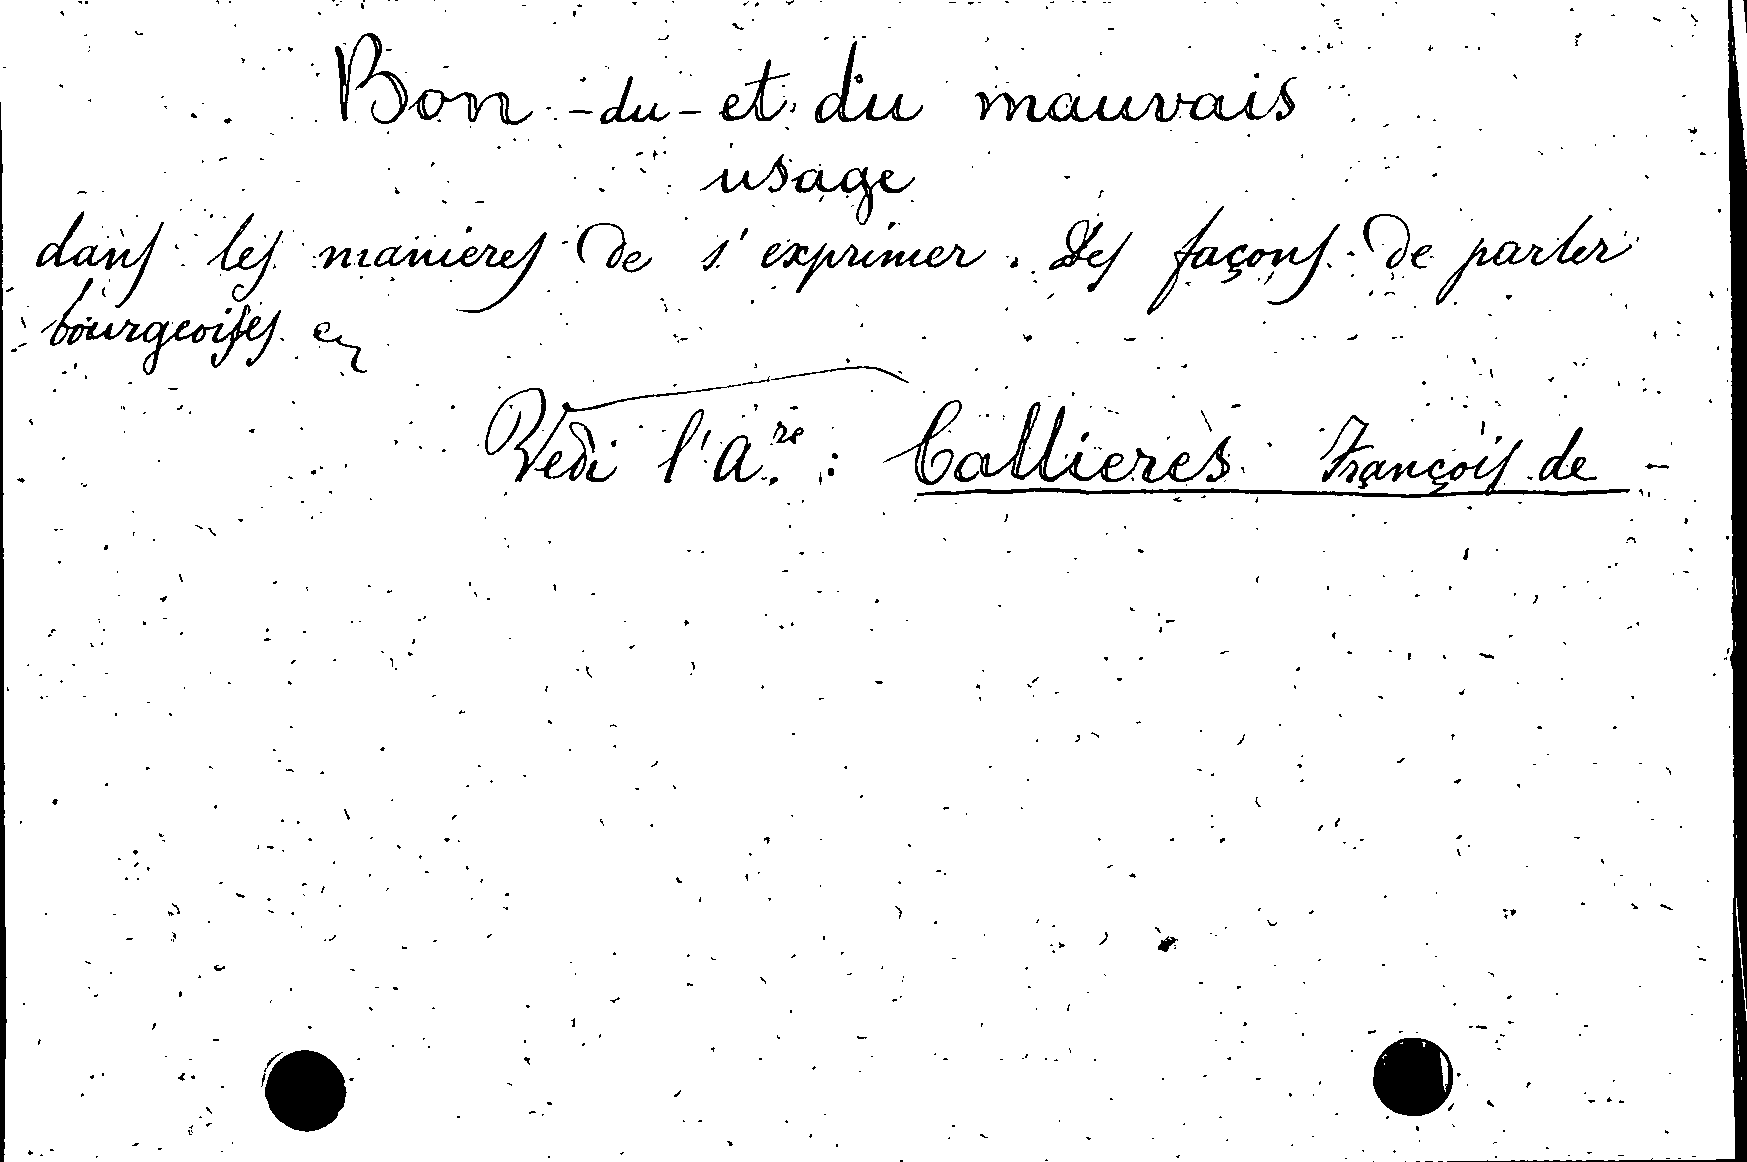 Bon -du- et du mauvais
usage
dans les manieres de s'exprimer. Des façons de parler
bourgeoises
Vedi l'A.re : Callieres François de -